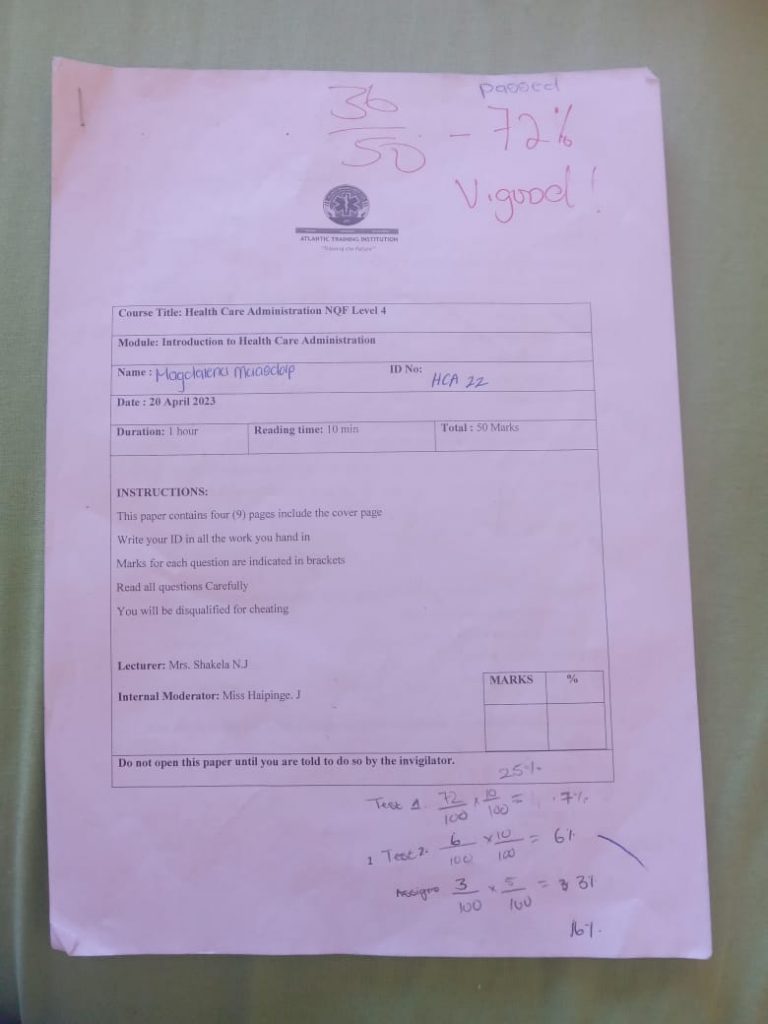 passed
36
50
- 72%
V. good!
ATLANTIC TRAINING INSTITUTION
Course Title: Health Care Administration NQF Level 4
Module: Introduction to Health Care Administration
Name : Magdalena ID No: HCA 22
Date : 20 April 2023
Duration: 1 hour Reading time: 10 min Total : 50 Marks
INSTRUCTIONS:
This paper contains four (9) pages include the cover page
Write your ID in all the work you hand in
Marks for each question are indicated in brackets
Read all questions Carefully
You will be disqualified for cheating
Lecturer: Mrs. Shakela N.J
Internal Moderator: Miss Haipinge. J
MARKS %
Do not open this paper until you are told to do so by the invigilator.
25%
Test 1. 72/100 x 10/100 = 7%
Test 2. 6/100 x 10/100 = 6%
Assign 3/100 x 5/100 = 3%
16%